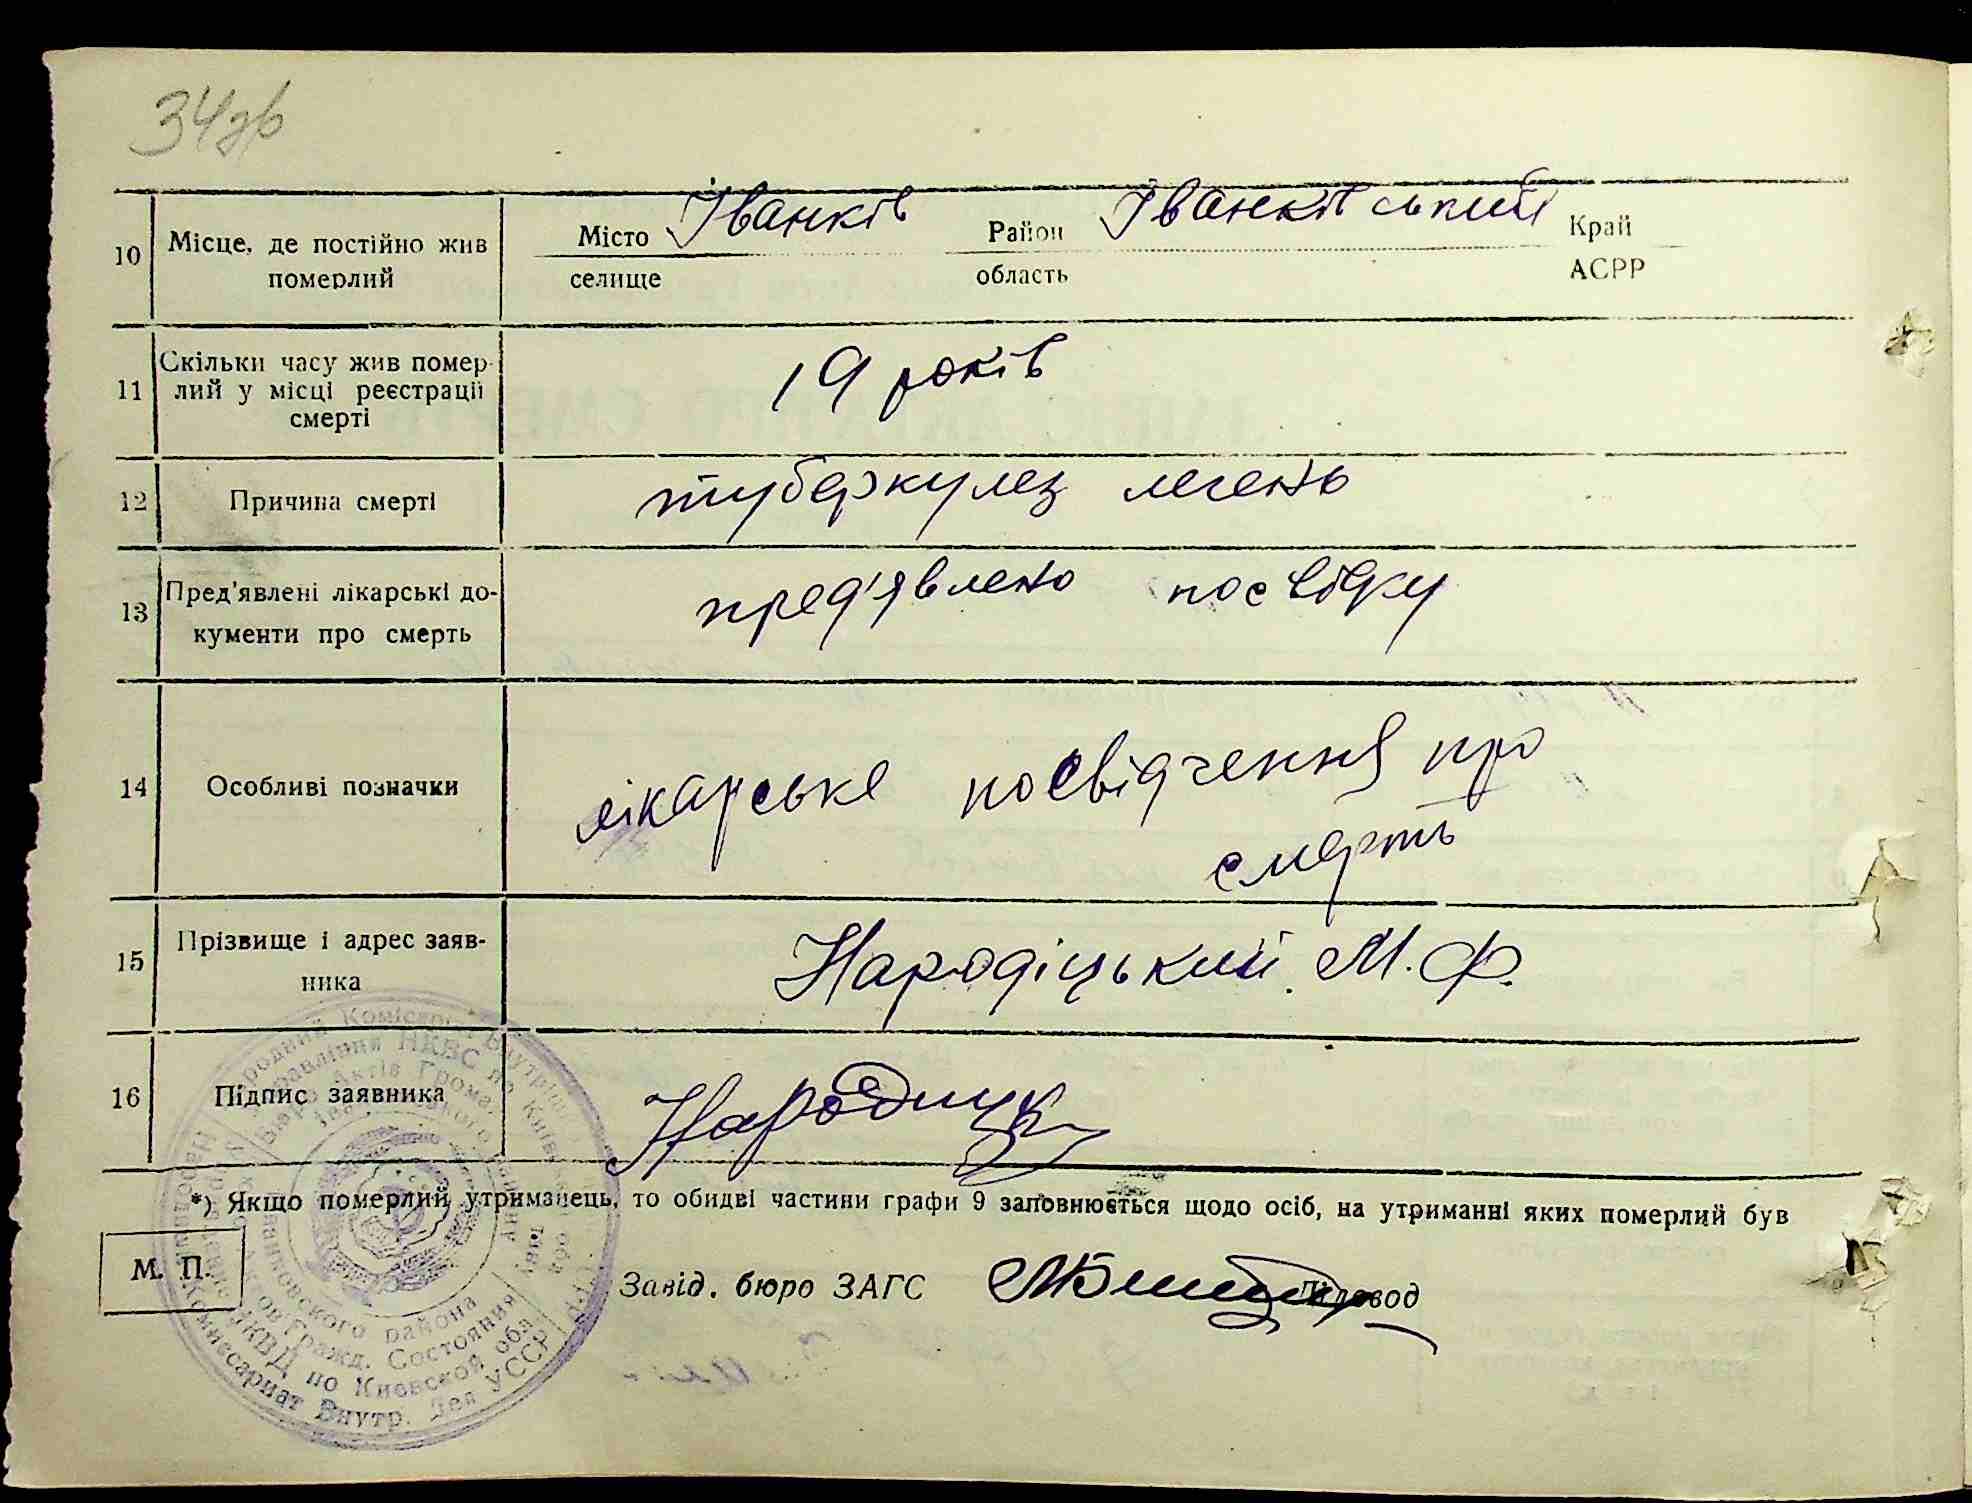 34зв
10
Місце, де постійно жив
померлий
Місто Іванків Район Іванківський Край
селище область АСРР
11
Скільки часу жив помер-
лий у місці реєстрації
смерті
19 років
12 Причина смерті туберкулез легень
13
Пред'явлені лікарські до-
кументи про смерть
пред'явлено посвідку
14 Особливі позначки
лікарське посвідчення про
смерть
15
Прізвище і адрес заяв-
ника
Народіцький. М. Ф.
16 Підпис заявника Народицк
*) Якщо померлий утриманець, то обидві частини графи 9 заповнюється щодо осіб, на утриманні яких померлий був
М. П.
Завід. бюро ЗАГС Діловод
Народний Комісаріат Внутрішн
Управління НКВС по Київ
Бюро Актів Грома
Ивановского района
Актов Гражд. Состояния
УНКВД по Киевской обл
Комиссариат Внутр. Дел УССР